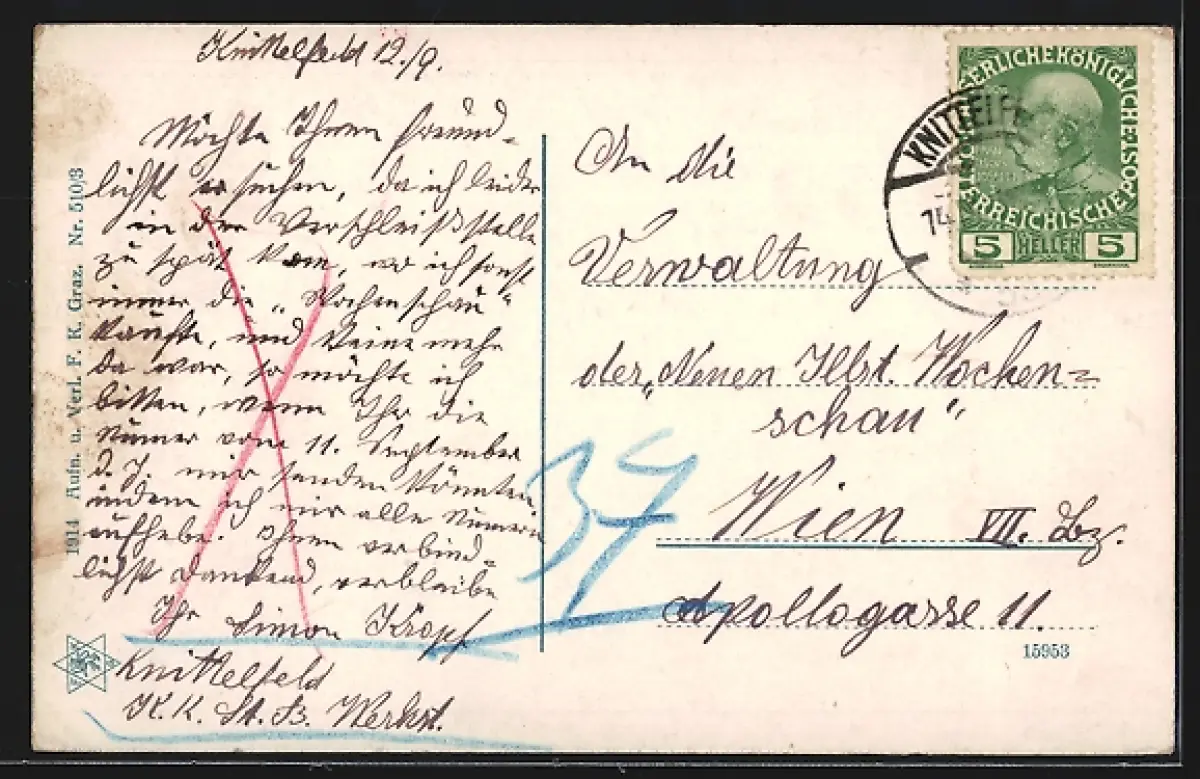 Knittelfeld 12./9.
Möchte Ihnen freund-
lichst ersuchen, da ich leider
in der Verschleißstelle
zu spät kam, wo ich sonst
immer die „Wochenschau"
kaufte, und keine mehr
da war, so möchte ich
bitten, wenn Ihr die
Numer vom 11. September
d. J. mir senden könnten,
indem ich mir alle Numern
aufhebe. Ihnen verbind-
lichst dankend, verbleibe
Ihr Simon Kropf
Knittelfeld
K. K. St. B. Werkst.
1914 Aufn. u. Verl. F. K. Graz. Nr. 510/3
An die
Verwaltung
der „Neuen Illst. Wochen=
schau"
Wien VII. Bz.
Apollogasse 11.
37
15953
KAISERLICHEKÖNIGLICHE
ÖSTERREICHISCHEPOST
5 HELLER 5
KNITTELF
14